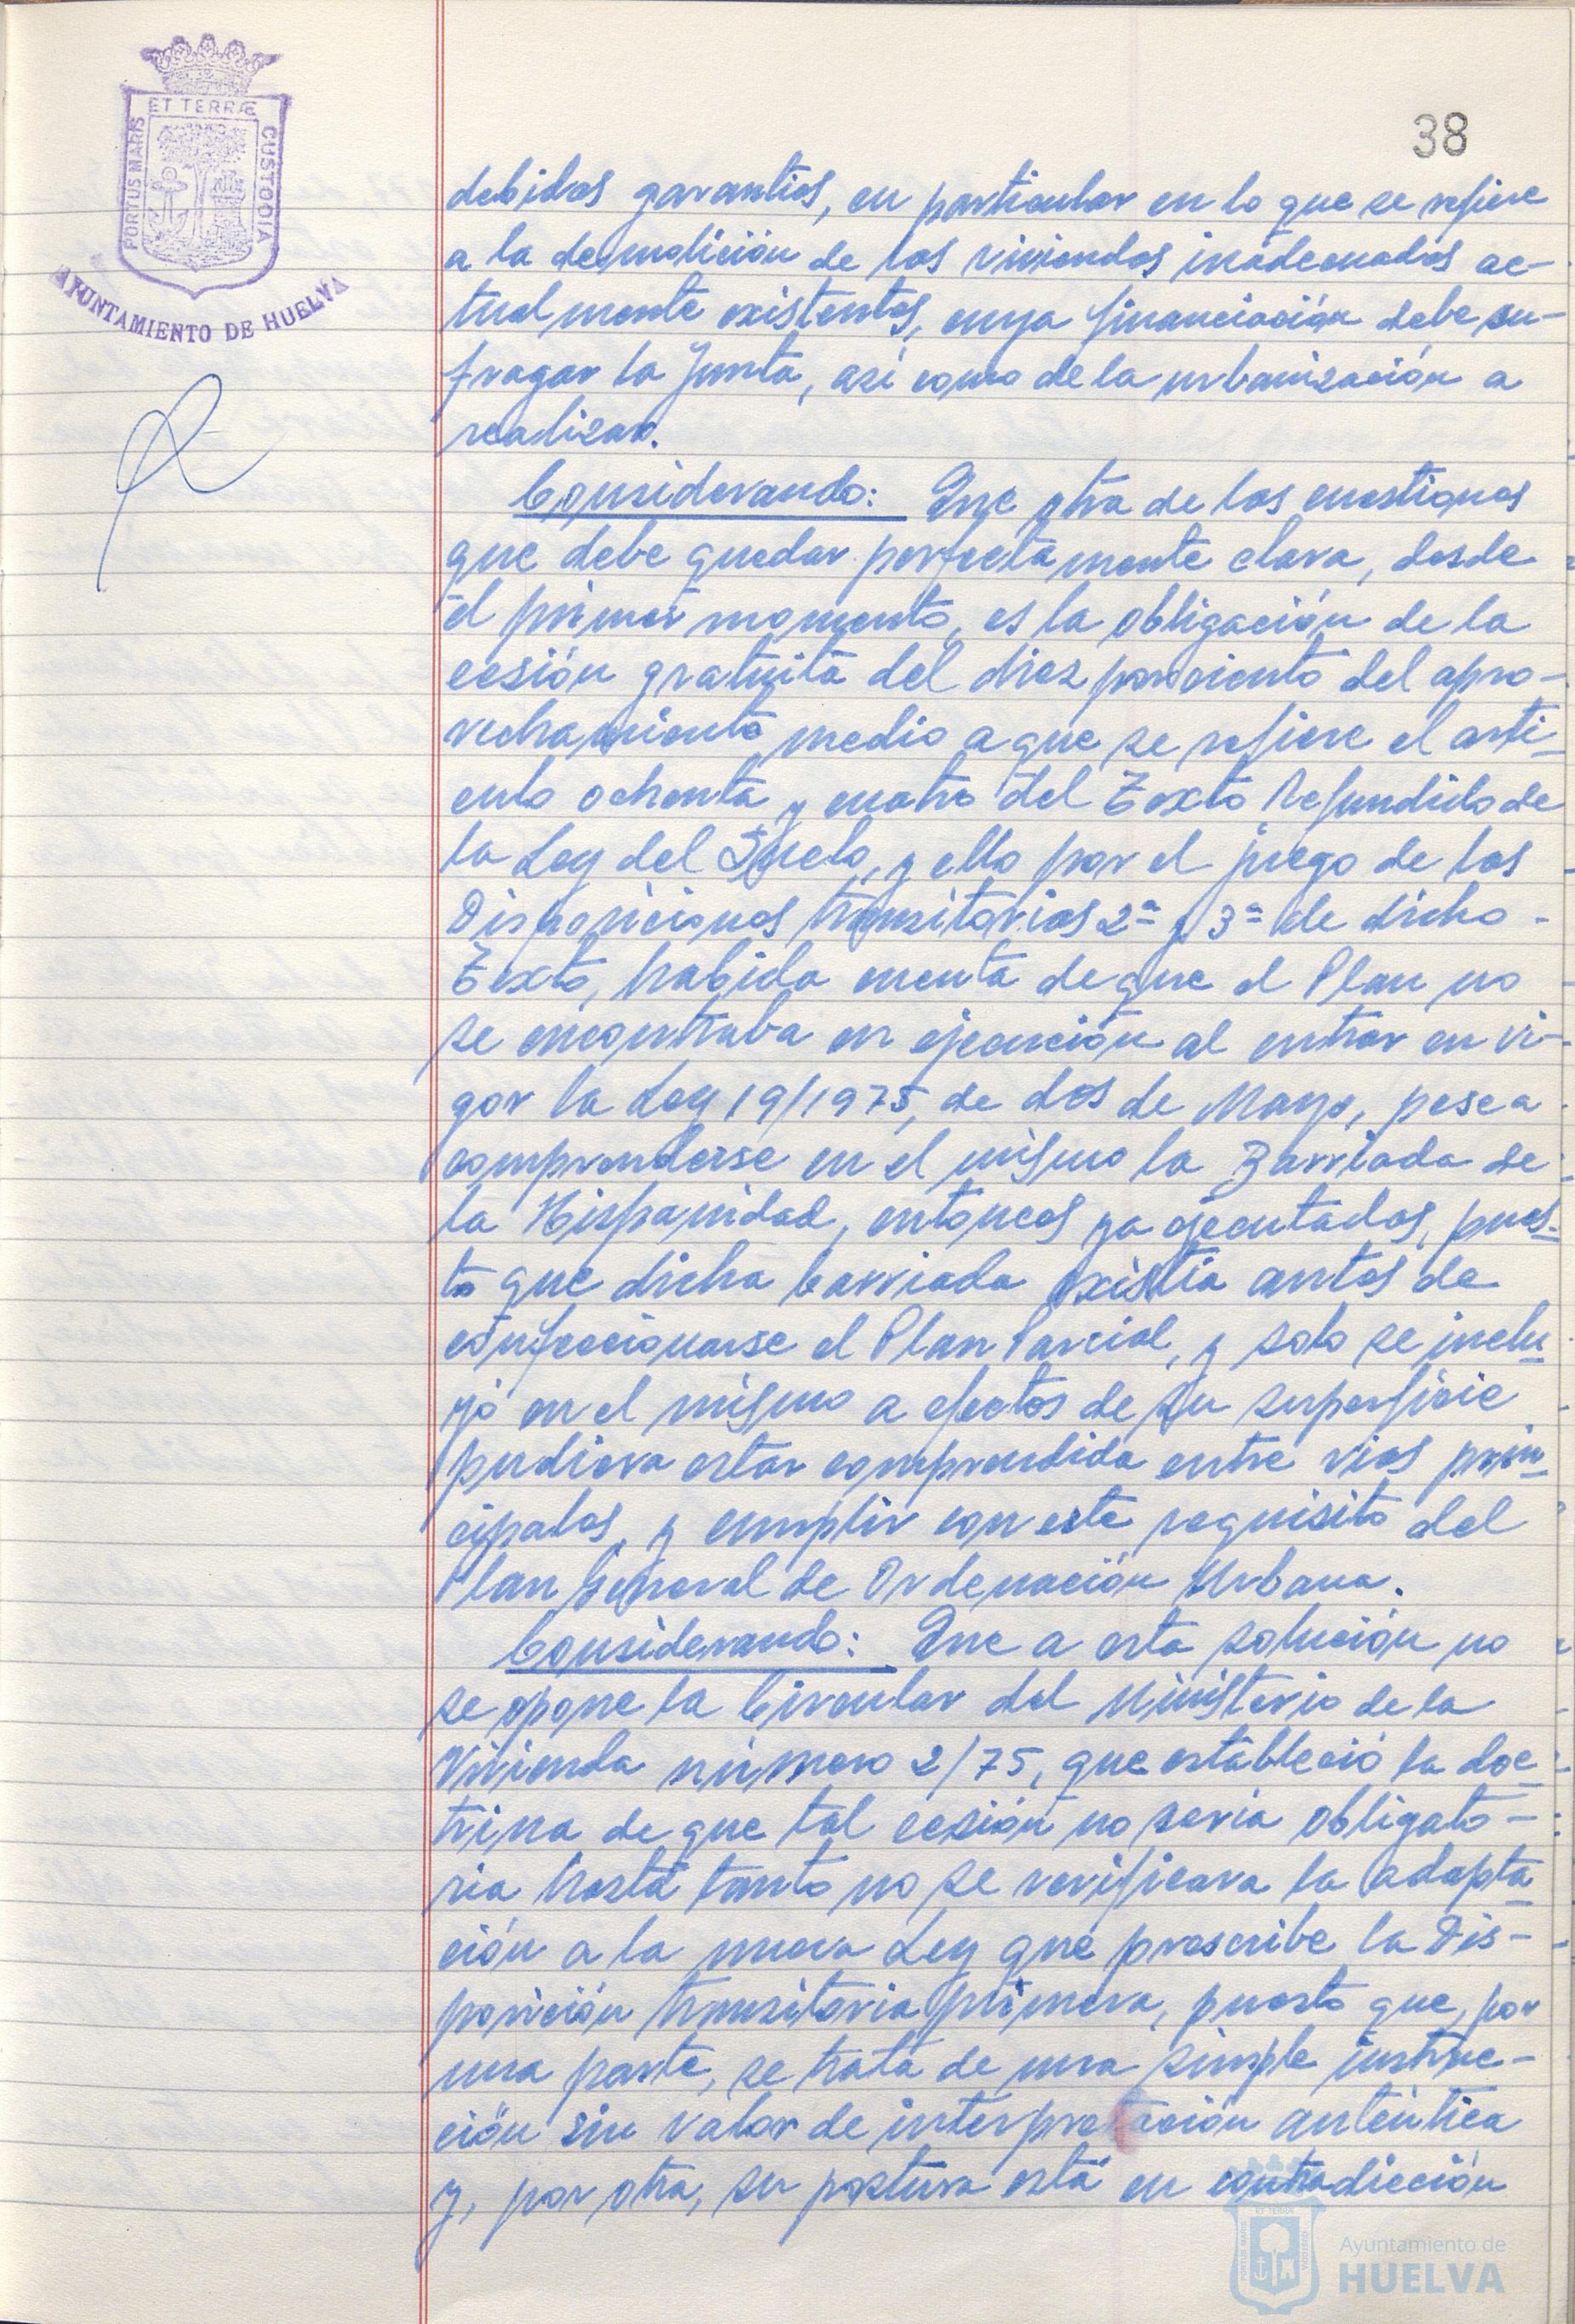 38
ET TERRÆ
PORTUS MARIS
CUSTODIA
AYUNTAMIENTO DE HUELVA
debidas garantías, en particular en lo que se refiere
a la demolición de las viviendas inadecuadas ac-
tualmente existentes, cuya financiación debe su-
fragar la Junta, así como de la urbanización a
realizar.
Considerando: Que otra de las cuestiones
que debe quedar perfectamente clara, desde
el primer momento, es la obligación de la
cesión gratuita del diez por ciento del apro-
vechamiento medio a que se refiere el artí-
culo ochenta y cuatro del Texto Refundido de
la Ley del Suelo, y ello por el juego de las
Disposiciones transitorias 2ª y 3ª de dicho -
Texto, habida cuenta de que el Plan no
se encontraba en ejecución al entrar en vi-
gor la Ley 19/1975, de dos de Mayo, pese a
comprenderse en el mismo la Barriada de
la Hispanidad, entonces ya ejecutadas, pues-
to que dicha barriada existía antes de
confeccionarse el Plan Parcial, y solo se inclu-
yó en el mismo a efectos de su superficie
pudiera estar comprendida entre vías prin-
cipales, y cumplir con este requisito del
Plan General de Ordenación Urbana.
Considerando: Que a esta solución no
se opone la Circular del Ministerio de la
Vivienda número 2/75, que estableció la doc-
trina de que tal cesión no sería obligato-
ria hasta tanto no se verificara la adapta-
ción a la nueva Ley que prescribe la Dis-
posición transitoria primera, puesto que, por
una parte, se trata de una simple instruc-
ción sin valor de interpretación auténtica
y, por otra, su postura está en contradicción
Ayuntamiento de
HUELVA